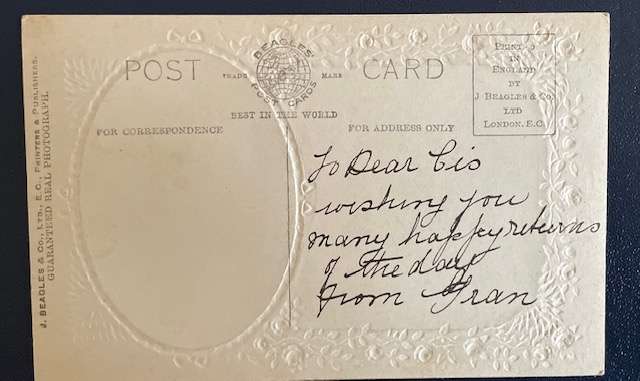 POST TRADE BEAGLES' POST CARDS MARK CARD
BEST IN THE WORLD
FOR CORRESPONDENCE
FOR ADDRESS ONLY
PRINTED
IN
ENGLAND
BY
J. BEAGLES & Co.
LTD
LONDON. E.C.
To Dear Cis
wishing you
many happy returns
of the day
from Gran
J. BEAGLES & Co., LTD., E.C., PRINTERS & PUBLISHERS.
GUARANTEED REAL PHOTOGRAPH.